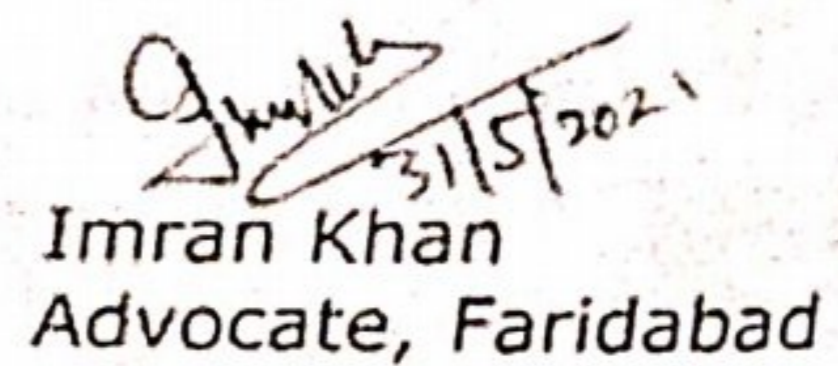 31/5/2021
Imran Khan
Advocate, Faridabad